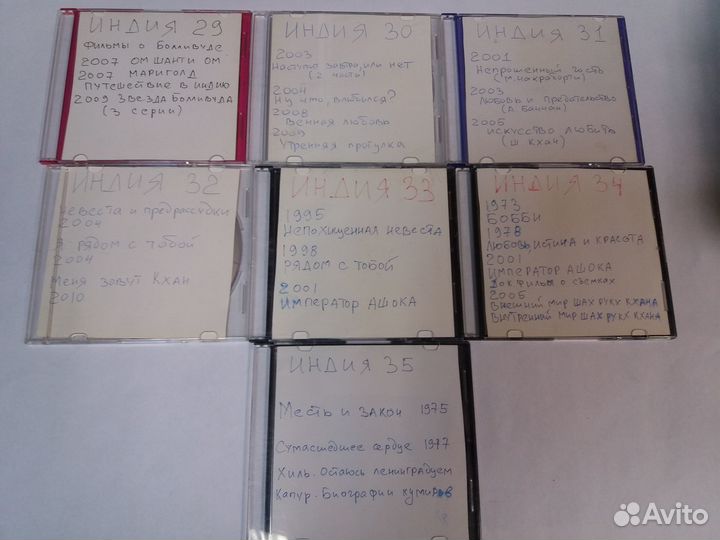 ИНДИЯ 29
Фильмы о Болливуде
2007 ОМ ШАНТИ ОМ
2007 МАРИГОЛД
ПУТЕШЕСТВИЕ В ИНДИЮ
2009 ЗВЕЗДА БОЛИВУДА
(3 СЕРИИ)
ИНДИЯ 30
2003
Наступит завтра, или нет
(2 части)
2004
Ну что, влюбился?
2008
Венная любовь
2009
Утренняя прогулка
ИНДИЯ 31
2001
Непрошенный гость
(М. Чакраборти)
2003
Любовь и предательство
(А Баччан)
2005
Искусство любить
(Ш Кхан)
ИНДИЯ 32
Невеста и предрассудки
2004
Я рядом с тобой
2004
Меня зовут Кхан
2010
ИНДИЯ 33
1995
НЕПОХИЩЕННАЯ НЕВЕСТА
1998
РЯДОМ С ТОБОЙ
2001
ИМПЕРАТОР АШОКА
ИНДИЯ 34
1973
БОББИ
1978
ЛЮБОВЬ ИСТИНА И КРАСОТА
2001
ИМПЕРАТОР АШОКА
ДОК. ФИЛЬМЫ О СЪЕМКАХ
2005
ВНЕШНИЙ МИР ШАХ РУКХ КХАНА
ВНУТРЕННИЙ МИР ШАХ РУКХ КХАНА
ИНДИЯ 35
Месть и закон 1975
Сумасшедшее сердце 1977
Хиль. Остаюсь ленинградцем
Капур. Биографии кумиров
Avito